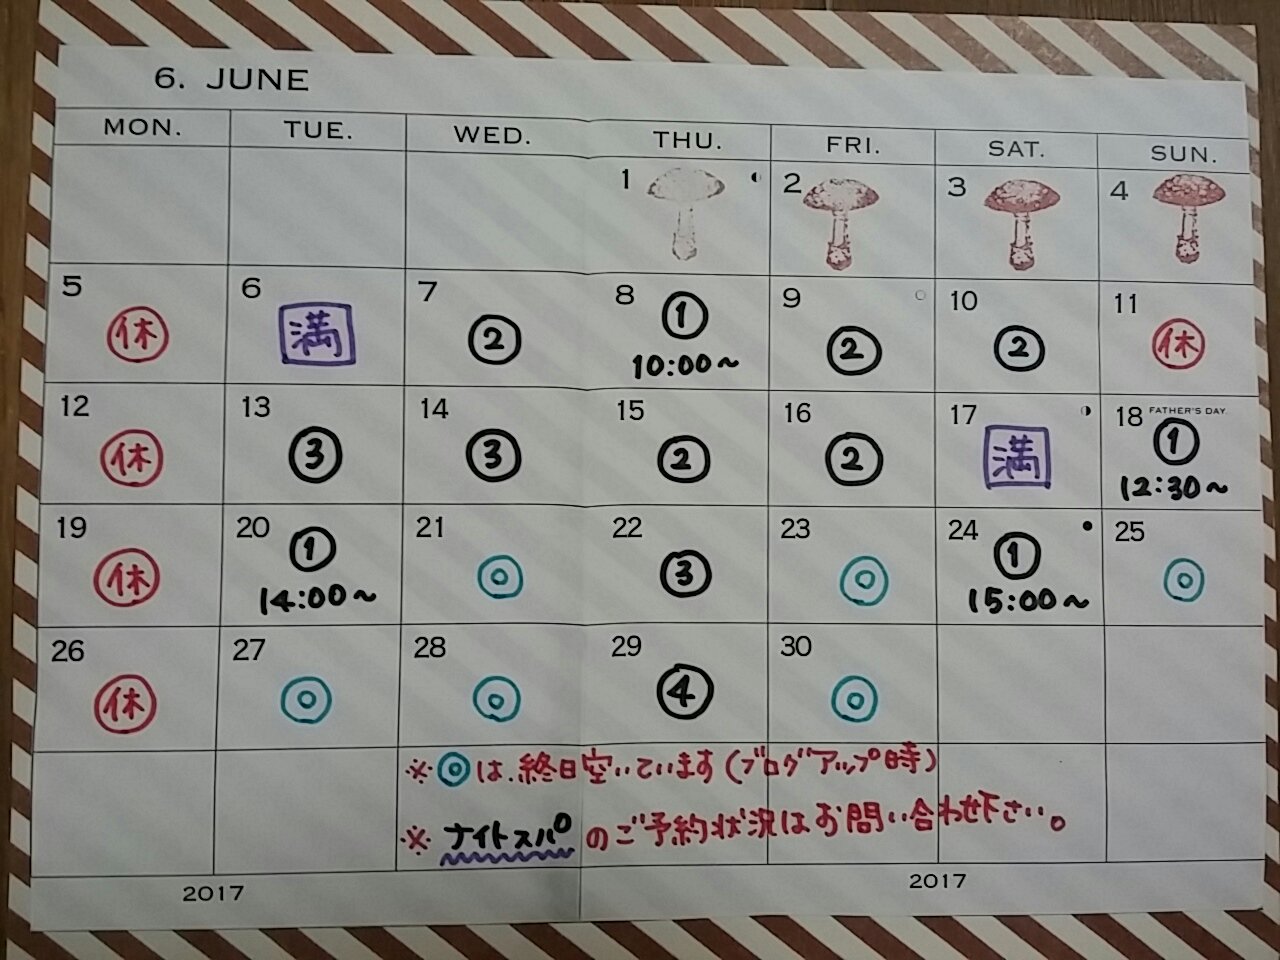 6. JUNE
MON. TUE. WED. THU. FRI. SAT. SUN.
1 2 3 4
5 6 7 8 9 10 11
休 満 ② ① ② ② 休
10:00~
12 13 14 15 16 17 18 FATHER'S DAY.
休 ③ ③ ② ② 満 ①
12:30~
19 20 21 22 23 24 25
休 ① ◎ ③ ◎ ① ◎
14:00~ 15:00~
26 27 28 29 30
休 ◎ ◎ ④ ◎
※◎は、終日空いています(ブログアップ時)
※ナイトスパのご予約状況はお問い合わせ下さい。
2017 2017